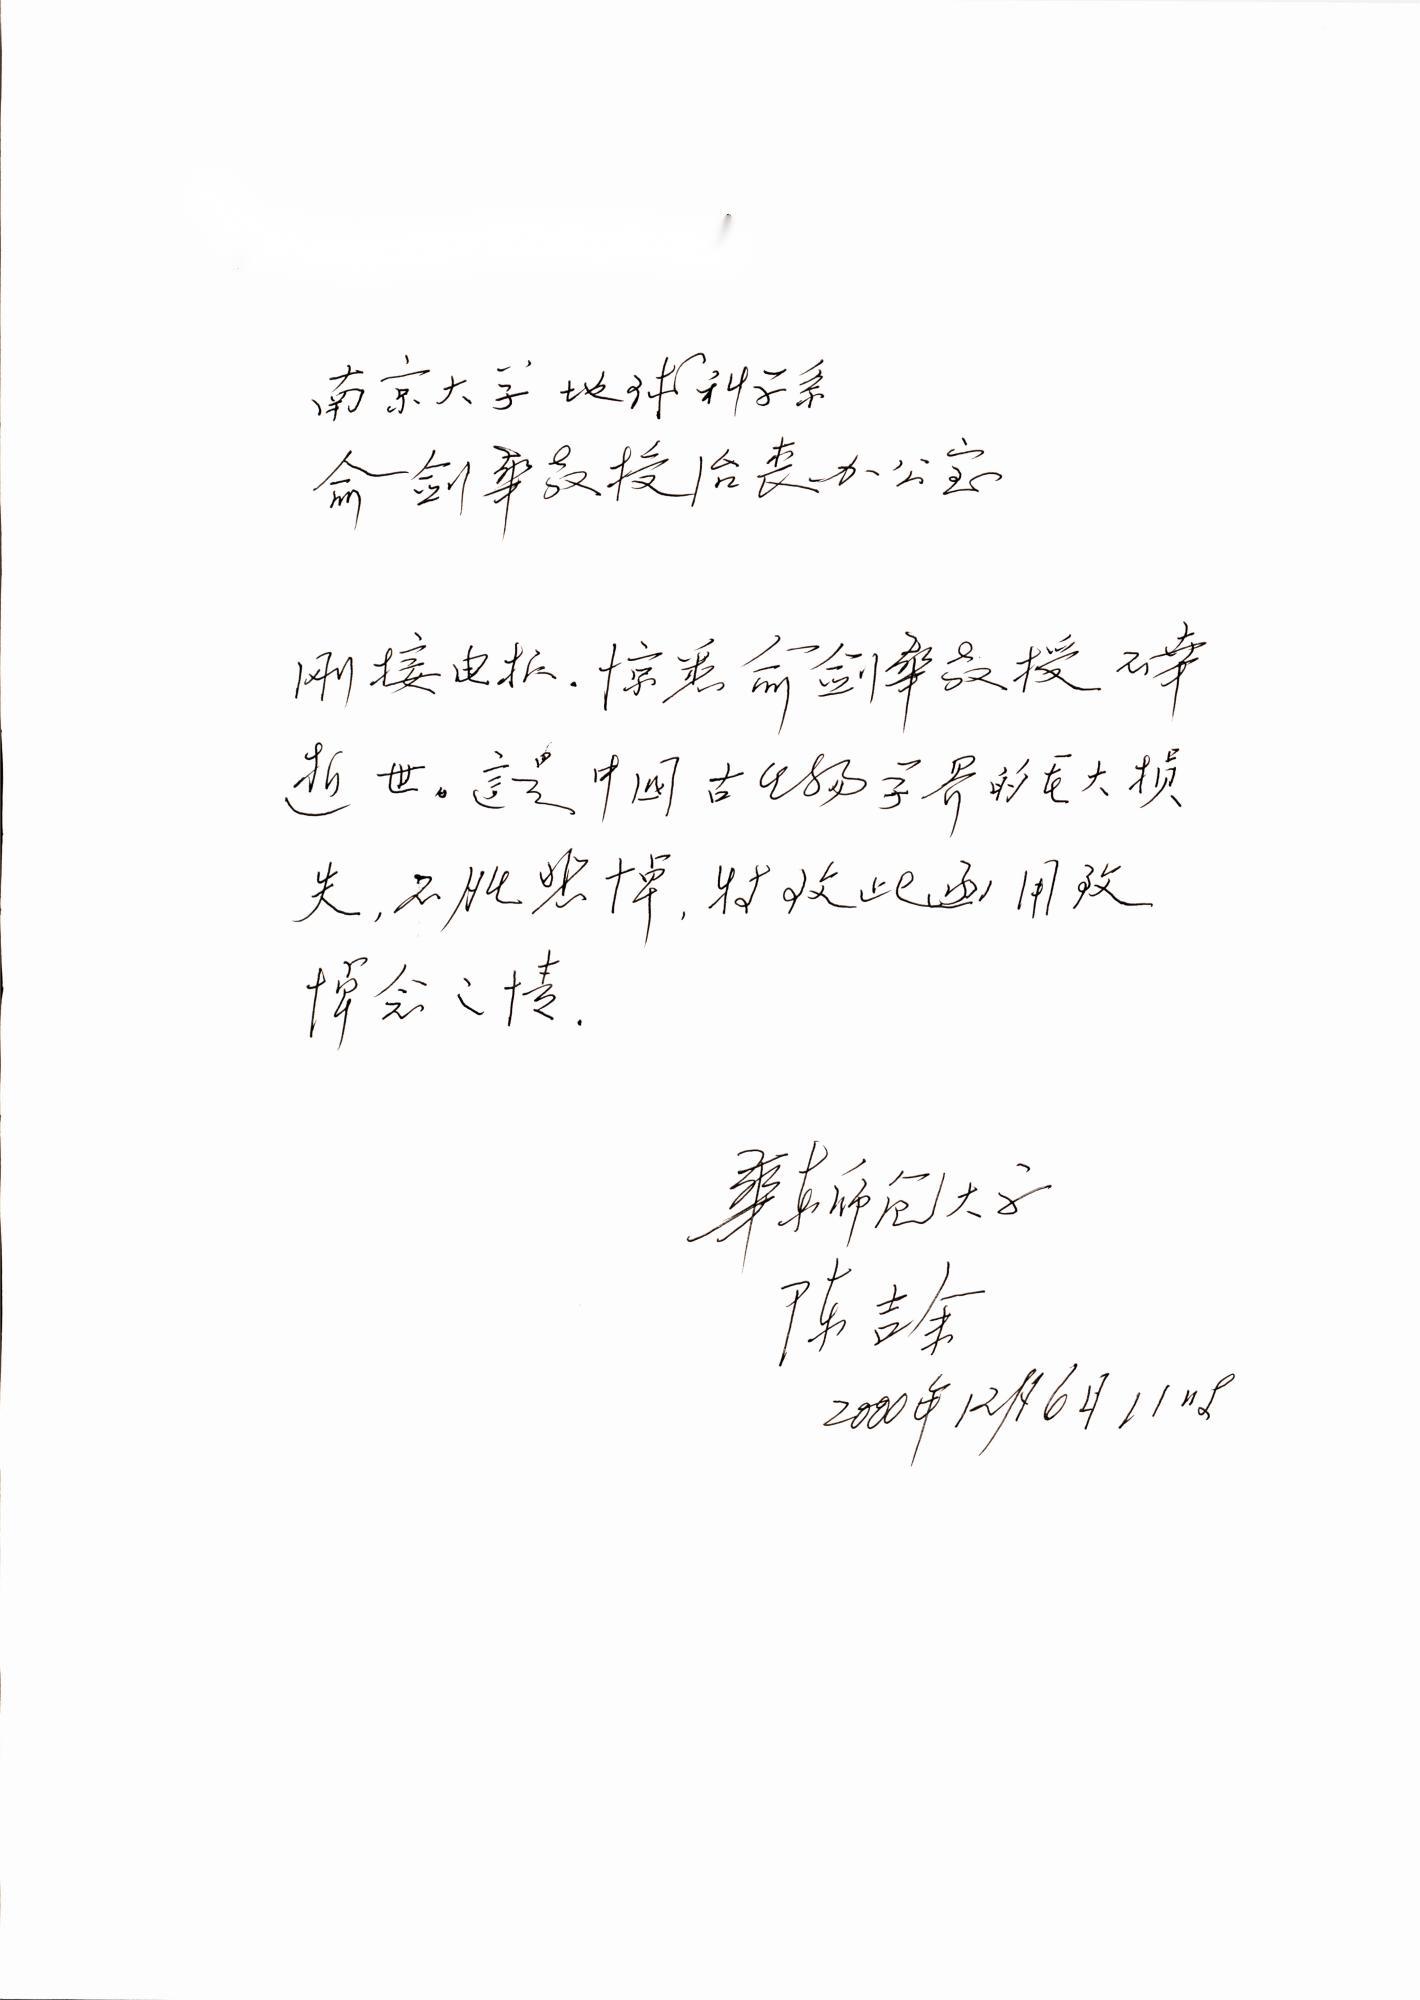 南京大学地球科学系
俞剑华教授治丧办公室
刚接电报.惊悉俞剑华教授不幸
逝世。這是中国古生物学界的重大损
失,不胜悲悼,特致此函用致
悼念之情.
華东师范大学
陈吉余
2000年12月6日11时